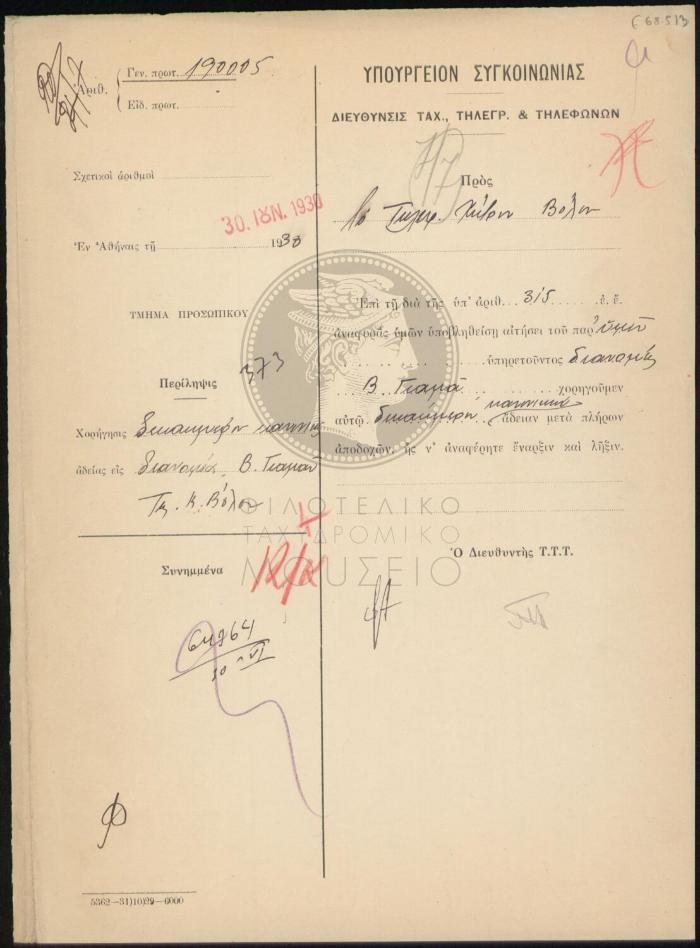 (68513
Ἀριθ.
Γεν. πρωτ. 190005
Εἰδ. πρωτ.
Σχετικοὶ ἀριθμοὶ
30. ΙΟΥΝ. 1930
Ἐν Ἀθήναις τῇ 1930
ΤΜΗΜΑ ΠΡΟΣΩΠΙΚΟΥ
373
Περίληψις
Χορήγησις δεκαημέρου κανονικῆς
ἀδείας εἰς διανομέα Β. Γιαμᾶν
Τη. Κ. Βόλου
Συνημμένα
12/2
ΥΠΟΥΡΓΕΙΟΝ ΣΥΓΚΟΙΝΩΝΙΑΣ
ΔΙΕΥΘΥΝΣΙΣ ΤΑΧ., ΤΗΛΕΓΡ. & ΤΗΛΕΦΩΝΩΝ
Πρὸς
Τὸ Τηλεγρ. Κέντρον Βόλου
Ἐπὶ τῇ διὰ τῆς ὑπ' ἀριθ. 315 ἐ. ἔ.
ἀναφορᾶς ὑμῶν ὑποβληθείσῃ αἰτήσει τοῦ παρ' ὑμῖν
ὑπηρετοῦντος διανομέως
Β. Γιαμᾶ χορηγοῦμεν
αὐτῷ δεκαήμερον κανονικὴν ἄδειαν μετὰ πλήρων
ἀποδοχῶν, ἧς ν' ἀναφέρητε ἔναρξιν καὶ λῆξιν.
Ὁ Διευθυντὴς Τ.Τ.Τ.
ΦΙΛΟΤΕΛΙΚΟ
ΤΑΧΥΔΡΟΜΙΚΟ
ΜΟΥΣΕΙΟ
5362—31)10)29—6000